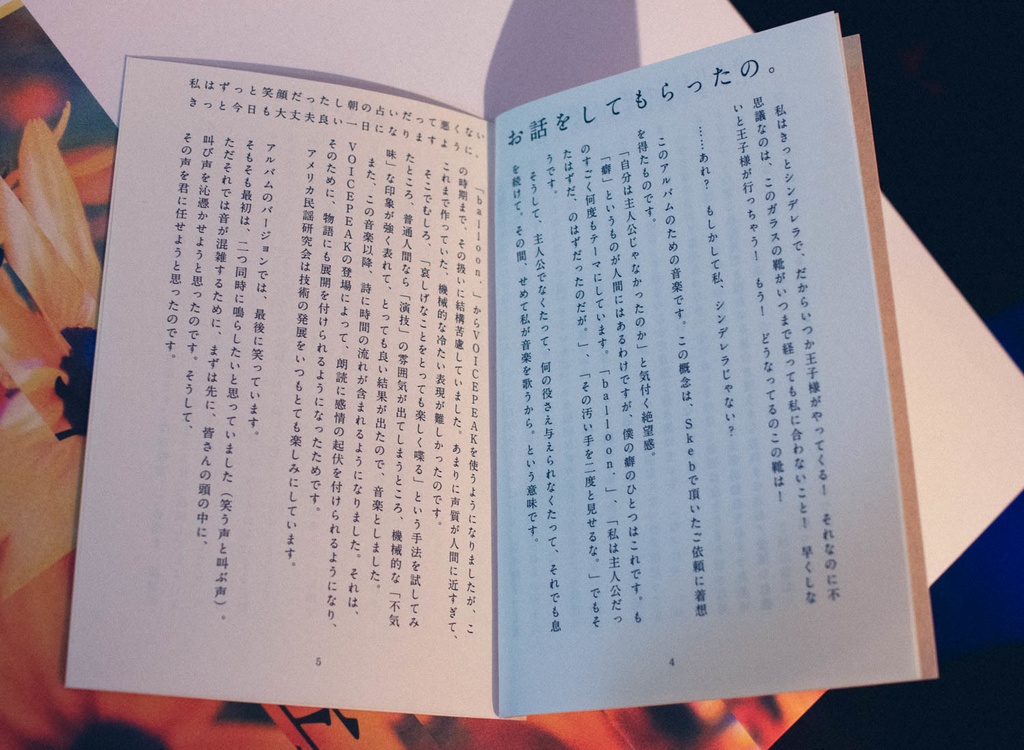 お話をしてもらったの。
私はきっとシンデレラで、だからいつか王子様がやってくる！　それなのに不
思議なのは、このガラスの靴がいつまで経っても私に合わないこと！　早くしな
いと王子様が行っちゃう！　もう！　どうなってるのこの靴は！
……あれ？　もしかして私、シンデレラじゃない？
このアルバムのための音楽です。この概念は、Skebで頂いたご依頼に着想
を得たものです。
「自分は主人公じゃなかったのか」と気付く絶望感。
「癖」というものが人間にはあるわけですが、僕の癖のひとつはこれです。も
のすごく何度もテーマにしています。「balloon.」、「私は主人公だっ
たはずだ、のはずだったのだが。」、「その汚い手を二度と見せるな。」でもそ
うです。
そうして、主人公でなくたって、何の役さえ与えられなくたって、それでも息
を続けて。その間、せめて私が音楽を歌うから。という意味です。
4
私はずっと笑顔だったし朝の占いだって悪くない
きっと今日も大丈夫良い一日になりますように。
「balloon.」からVOICEPEAKを使うようになりましたが、こ
の時期まで、その扱いに結構苦慮していました。あまりに声質が人間に近すぎて、
これまで作っていた、機械的な冷たい表現が難しかったのです。
そこでむしろ、「哀しげなことをとっても楽しく喋る」という手法を試してみ
たところ、普通人間なら「演技」の雰囲気が出てしまうところ、機械的な「不気
味」な印象が強く表れて、とっても良い結果が出たので、音楽としました。
また、この音楽以降、詩に時間の流れが含まれるようになりました。それは、
VOICEPEAKの登場によって、朗読に感情の起伏を付けられるようになり、
そのために、物語にも展開を付けられるようになったためです。
アメリカ民謡研究会は技術の発展をいつもとても楽しみにしています。
アルバムのバージョンでは、最後に笑っています。
そもそも最初は、二つ同時に鳴らしたいと思っていました（笑う声と叫ぶ声）。
ただそれでは音が混雑するために、まずは先に、皆さんの頭の中に、
叫び声を沁憑かせようと思ったのです。そうして、
その声を君に任せようと思ったのです。
5